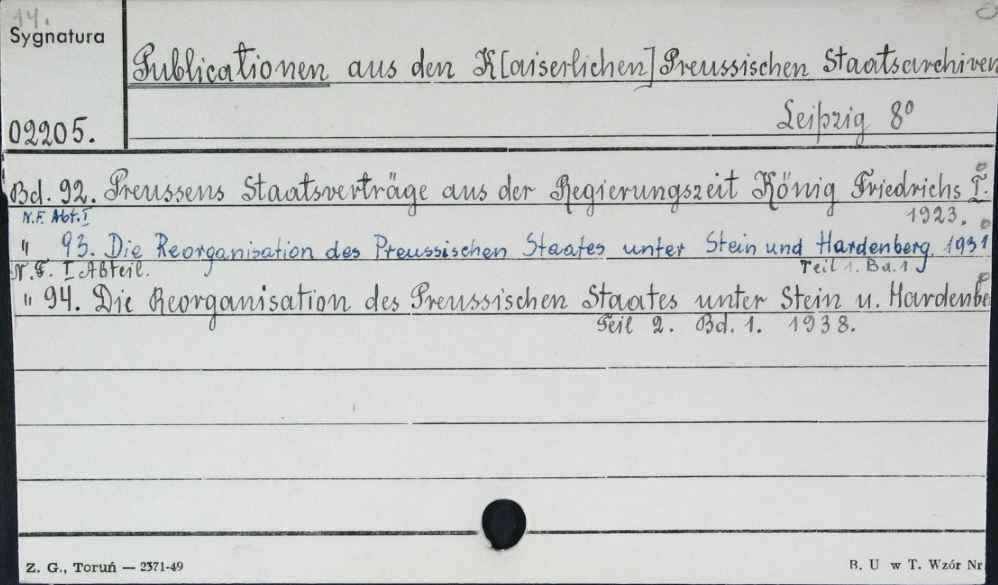 14.
Sygnatura
Publicationen aus den K[aiserlichen] Preussischen Staatsarchiven
Leipzig 8°
02205.
Bd. 92. Preussens Staatsverträge aus der Regierungszeit König Friedrichs I.
N.F. Abt. I
1923.
" 93. Die Reorganisation des Preussischen Staates unter Stein und Hardenberg 1931
N.F. I Abteil.
Teil 1. Bd. 1
" 94. Die Reorganisation des Preussischen Staates unter Stein u. Hardenbe
Teil 2. Bd. 1. 1938.
Z. G., Toruń — 2371-49
B. U w T. Wzór Nr